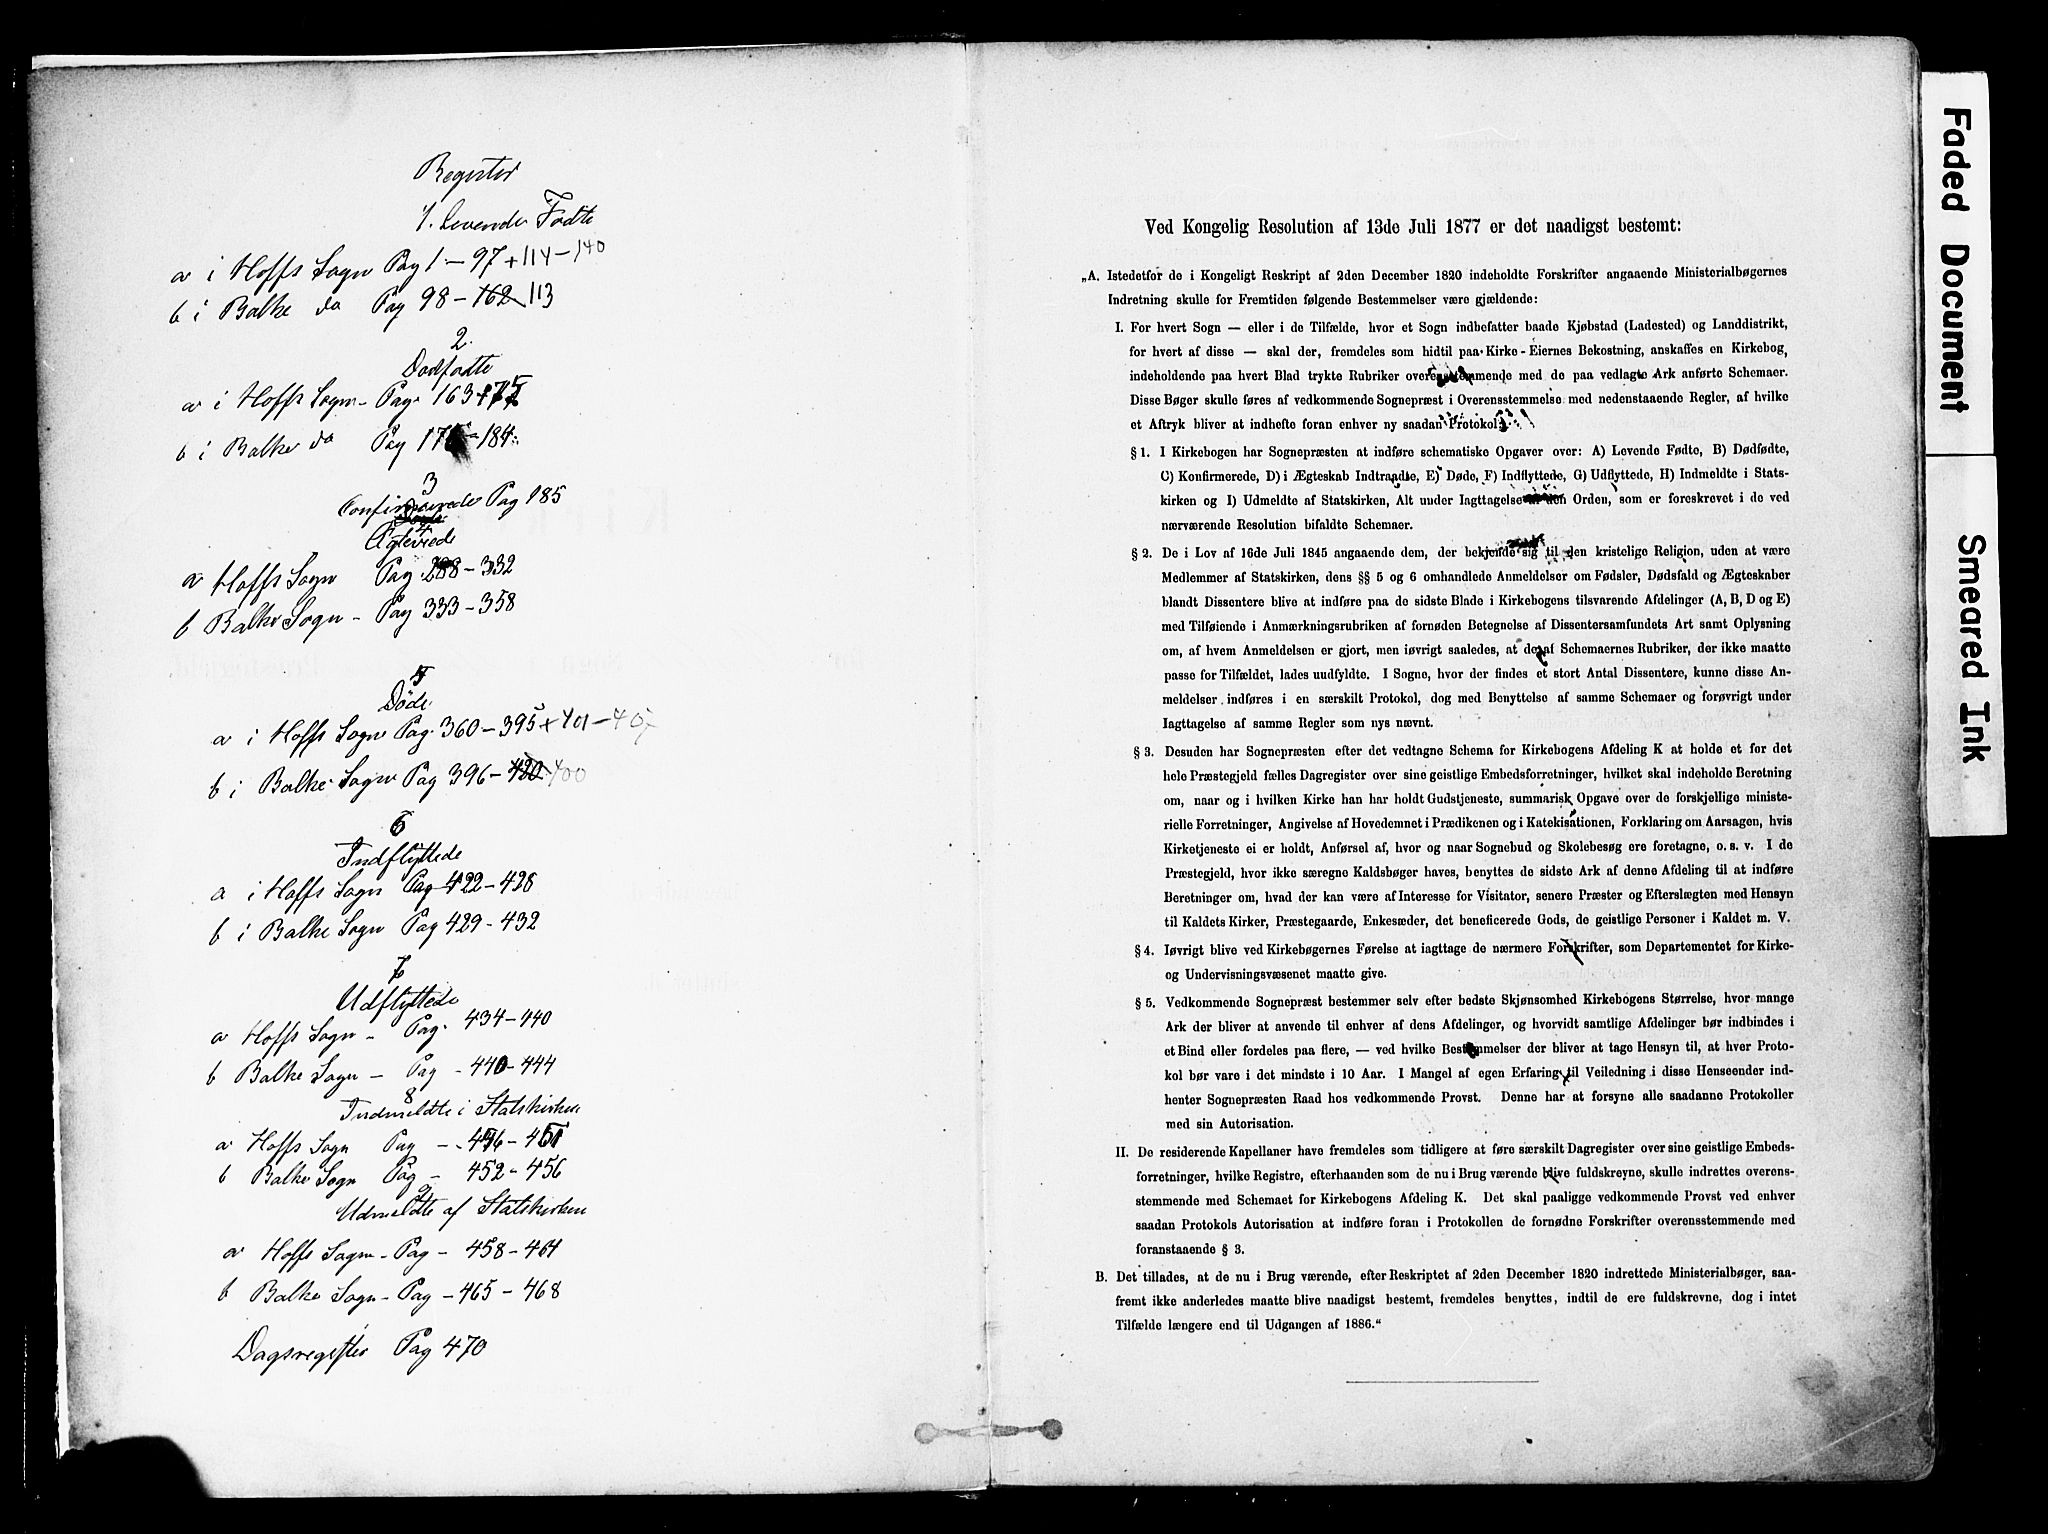 Register
1. Levende Fødte
a i Hoffs Sogn Pag 1 – 97 + 114 – 140
b i Balke do Pag 98 – 162 113
2.
Dødfødte
a i Hoffs Sogn – Pag. 163
b i Balke do Pag 184
3
Confirmerede Pag 185
4
Ægteviede
a Hoffs Sogn Pag. 288 – 332
b Balke Sogn – Pag 333 – 358
5
Døde
a i Hoffs Sogn Pag. 360 – 395 + 401 – 405
b i Balke Sogn Pag 396 – 420 400
6
Indflyttede
a i Hoffs Sogn Pag 422 – 428
b i Balke Sogn Pag 429 – 432
7
Udflyttede
a Hoffs Sogn – Pag. 434 – 440
b Balke Sogn – Pag – 440 – 444
8
Indmeldte i Statskirken
a Hoffs Sogn Pag – 446 – 451
b Balke Sogn Pag – 452 – 456
9
Udmeldte af Statskirken
a Hoffs Sogn – Pag – 458 – 464
b Balke Sogn – Pag – 465 – 468
Dagsregister Pag 470
Ved Kongelig Resolution af 13de Juli 1877 er det naadigst bestemt:
„A. Istedetfor de i Kongeligt Reskript af 2den December 1820 indeholdte Forskrifter angaaende Ministerialbøgernes
Indretning skulle for Fremtiden følgende Bestemmelser være gjældende:
I. For hvert Sogn — eller i de Tilfælde, hvor et Sogn indbefatter baade Kjøbstad (Ladested) og Landdistrikt,
for hvert af disse — skal der, fremdeles som hidtil paa Kirke-Eiernes Bekostning, anskaffes en Kirkebog,
indeholdende paa hvert Blad trykte Rubriker overensstemmende med de paa vedlagte Ark anførte Schemaer.
Disse Bøger skulle føres af vedkommende Sognepræst i Overensstemmelse med nedenstaaende Regler, af hvilke
et Aftryk bliver at indhefte foran enhver ny saadan Protokol.
§ 1. I Kirkebogen har Sognepræsten at indføre schematiske Opgaver over: A) Levende Fødte, B) Dødfødte,
C) Konfirmerede, D) i Ægteskab Indtraadte, E) Døde, F) Indflyttede, G) Udflyttede, H) Indmeldte i Stats-
kirken og I) Udmeldte af Statskirken, Alt under Iagttagelse af den Orden, som er foreskrevet i de ved
nærværende Resolution bifaldte Schemaer.
§ 2. De i Lov af 16de Juli 1845 angaaende dem, der bekjende sig til den kristelige Religion, uden at være
Medlemmer af Statskirken, dens §§ 5 og 6 omhandlede Anmeldelser om Fødsler, Dødsfald og Ægteskaber
blandt Dissentere blive at indføre paa de sidste Blade i Kirkebogens tilsvarende Afdelinger (A, B, D og E)
med Tilføiende i Anmærkningsrubriken af fornøden Betegnelse af Dissentersamfundets Art samt Oplysning
om, af hvem Anmeldelsen er gjort, men iøvrigt saaledes, at de af Schemaernes Rubriker, der ikke maatte
passe for Tilfældet, lades uudfyldte. I Sogne, hvor der findes et stort Antal Dissentere, kunne disse An-
meldelser indføres i en særskilt Protokol, dog med Benyttelse af samme Schemaer og forøvrigt under
Iagttagelse af samme Regler som nys nævnt.
§ 3. Desuden har Sognepræsten efter det vedtagne Schema for Kirkebogens Afdeling K at holde et for det
hele Præstegjeld fælles Dagregister over sine geistlige Embedsforretninger, hvilket skal indeholde Beretning
om, naar og i hvilken Kirke han har holdt Gudstjeneste, summarisk Opgave over de forskjellige ministe-
rielle Forretninger, Angivelse af Hovedemnet i Prædikenen og i Katekisationen, Forklaring om Aarsagen, hvis
Kirketjeneste ei er holdt, Anførsel af, hvor og naar Sognebud og Skolebesøg ere foretagne, o. s. v. I de
Præstegjeld, hvor ikke særegne Kaldsbøger haves, benyttes de sidste Ark af denne Afdeling til at indføre
Beretninger om, hvad der kan være af Interesse for Visitator, senere Præster og Efterslægten med Hensyn
til Kaldets Kirker, Præstegaarde, Enkesæder, det beneficerede Gods, de geistlige Personer i Kaldet m. V.
§ 4. Iøvrigt blive ved Kirkebøgernes Førelse at iagttage de nærmere Forskrifter, som Departementet for Kirke-
og Undervisningsvæsenet maatte give.
§ 5. Vedkommende Sognepræst bestemmer selv efter bedste Skjønsomhed Kirkebogens Størrelse, hvor mange
Ark der bliver at anvende til enhver af dens Afdelinger, og hvorvidt samtlige Afdelinger bør indbindes i
et Bind eller fordeles paa flere, — ved hvilke Bestemmelser der bliver at tage Hensyn til, at hver Proto-
kol bør vare i det mindste i 10 Aar. I Mangel af egen Erfaring til Veiledning i disse Henseender ind-
henter Sognepræsten Raad hos vedkommende Provst. Denne har at forsyne alle saadanne Protokoller
med sin Autorisation.
II. De residerende Kapellaner have fremdeles som tidligere at føre særskilt Dagregister over sine geistlige Embeds-
forretninger, hvilke Registre, efterhaanden som de nu i Brug værende blive fuldskrevne, skulle indrettes overens-
stemmende med Schemaet for Kirkebogens Afdeling K. Det skal paaligge vedkommende Provst ved enhver
saadan Protokols Autorisation at indføre foran i Protokollen de fornødne Forskrifter overensstemmende med
foranstaaende § 3.
B. Det tillades, at de nu i Brug værende, efter Reskriptet af 2den December 1820 indrettede Ministerialbøger, saa-
fremt ikke anderledes maatte blive naadigst bestemt, fremdeles benyttes, indtil de ere fuldskrevne, dog i intet
Tilfælde længere end til Udgangen af 1886.“
Faded Document
Smeared Ink